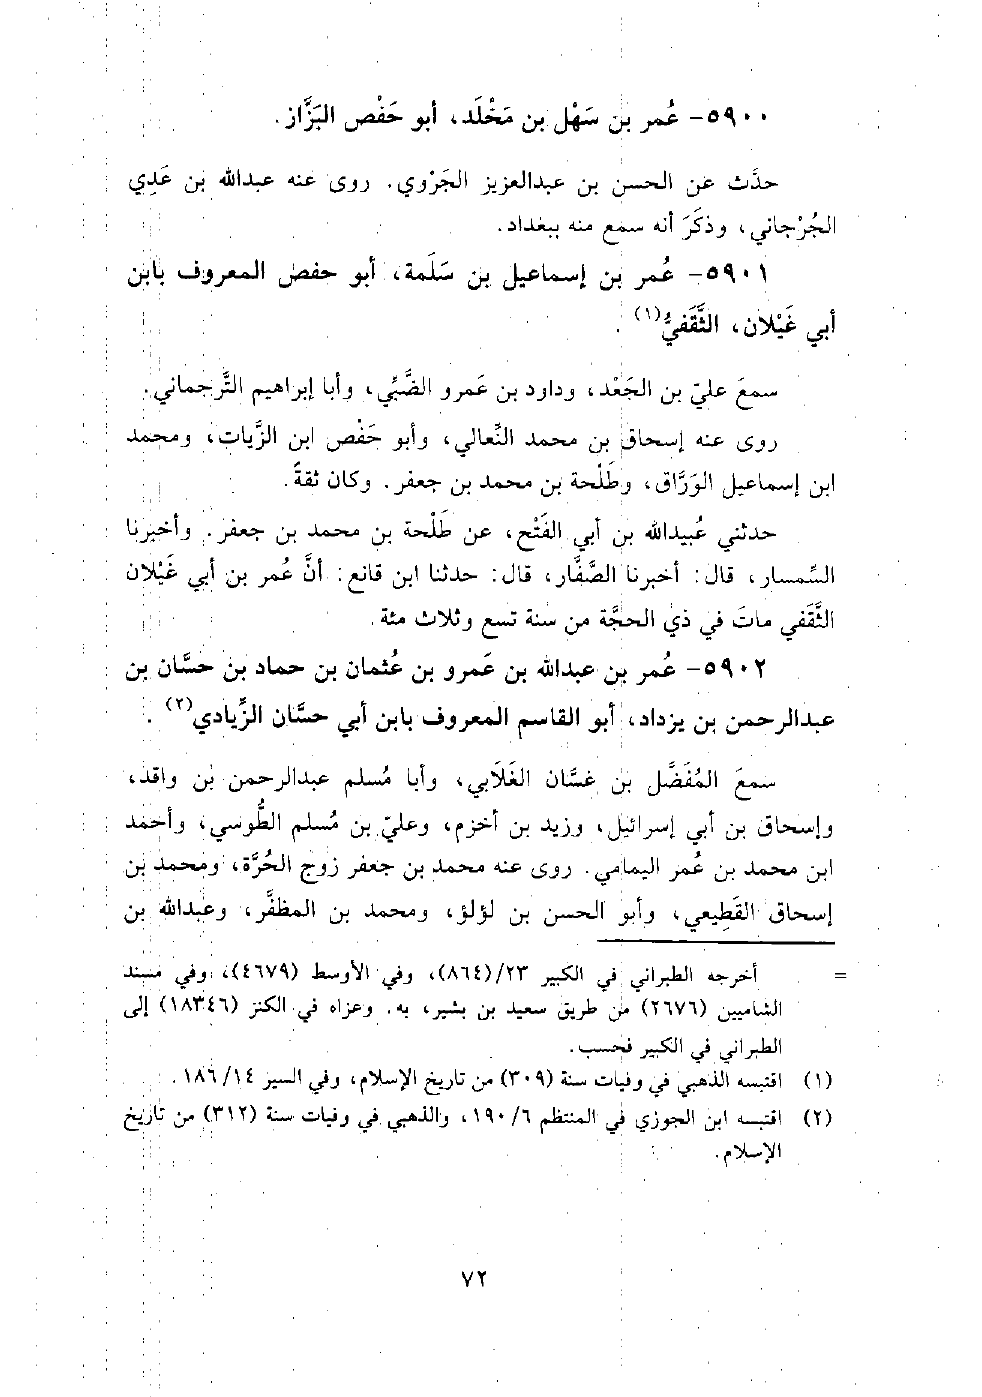 ٥٩٠٠- عُمر بن سَهْل بن مَخْلَد، أبو حَفْص البَزَّاز.
حدَّث عن الحسن بن عبدالعزيز الجَرْوي. روى عنه عبدالله بن عَدِي
الجُرْجاني، وذكَرَ أنه سمع منه ببغداد.
٥٩٠١- عُمر بن إسماعيل بن سَلَمة، أبو حفص المعروف بابن
أبي غَيْلان، الثَّقَفيُّ(١) .
سمعَ عليّ بن الجَعْد، وداود بن عَمرو الضَّبِّي، وأبا إبراهيم التَّرجماني.
روى عنه إسحاق بن محمد النِّعالي، وأبو حَفْص ابن الزَّيات، ومحمد
ابن إسماعيل الوَرَّاق، وطَلْحة بن محمد بن جعفر. وكان ثقةً.
حدثني عُبيدالله بن أبي الفَتْح، عن طَلْحة بن محمد بن جعفر. وأخبرنا
السِّمسار، قال: أخبرنا الصَّفَّار، قال: حدثنا ابن قانع: أنَّ عُمر بن أبي غَيْلان
الثَّقَفي ماتَ في ذي الحجَّة من سنة تسع وثلاث مئة.
٥٩٠٢- عُمر بن عبدالله بن عَمرو بن عُثمان بن حماد بن حسَّان بن
عبدالرحمن بن يزداد، أبو القاسم المعروف بابن أبي حسَّان الزِّيادي(٢) .
سمعَ المُفَضَّل بن غسَّان الغَلَابي، وأبا مُسلم عبدالرحمن بن واقد،
وإسحاق بن أبي إسرائيل، وزيد بن أخزم، وعليّ بن مُسلم الطُّوسي، وأحمد
ابن محمد بن عُمر اليمامي. روى عنه محمد بن جعفر زوج الحُرَّة، ومحمد بن
إسحاق القَطِيعي، وأبو الحسن بن لؤلؤ، ومحمد بن المظفَّر، وعبدالله بن
= أخرجه الطبراني في الكبير ٢٣/(٨٦٤)، وفي الأوسط (٤٦٧٩)، وفي مسند
الشاميين (٢٦٧٦) من طريق سعيد بن بشير، به. وعزاه في الكنز (١٨٣٤٦) إلى
الطبراني في الكبير فحسب.
(١) اقتبسه الذهبي في وفيات سنة (٣٠٩) من تاريخ الإسلام، وفي السير ١٤/ ١٨٦.
(٢) اقتبسه ابن الجوزي في المنتظم ٦/ ١٩٠، والذهبي في وفيات سنة (٣١٢) من تاريخ
الإسلام.
٧٢